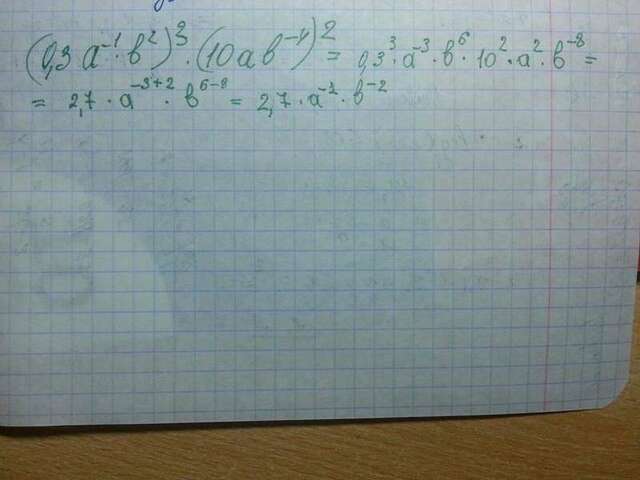 (0,3 a⁻¹ · b²)³ · (10ab⁻⁴)² = 0,3³ · a⁻³ · b⁶ · 10² · a² · b⁻⁸ =
= 2,7 · a⁻³⁺² · b⁶⁻⁸ = 2,7 · a⁻¹ · b⁻²